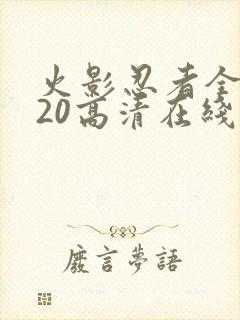 火影忍者全
20高清在线
廢言夢語